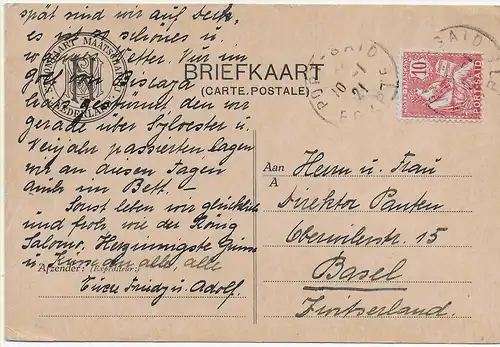 spät sind wir auf deck,
es ist so schönes u.
Wetter. Nur im
Golf von Biscaya
hat's gestürmt, den wir
gerade über Sylvester u.
Neujahr passierten, lagen
wir an diesen Tagen
amts im Bett. —
Sonst leben wir glücklich
und froh, wie der König
Salomo. Herzinnigste Grüsse
u. Küsse an alle, alle
Afzender: (Expéditeur:)
Eure Friedy u. Adolf.
BRIEFKAART
(CARTE.POSTALE)
PORT-SAID
10-1
21
EGYPTE
10
PORT-SAID
Aan
A
Herrn u. Frau
Direktor Panten
Oberwilerstr. 15
Basel
Zwitserland.